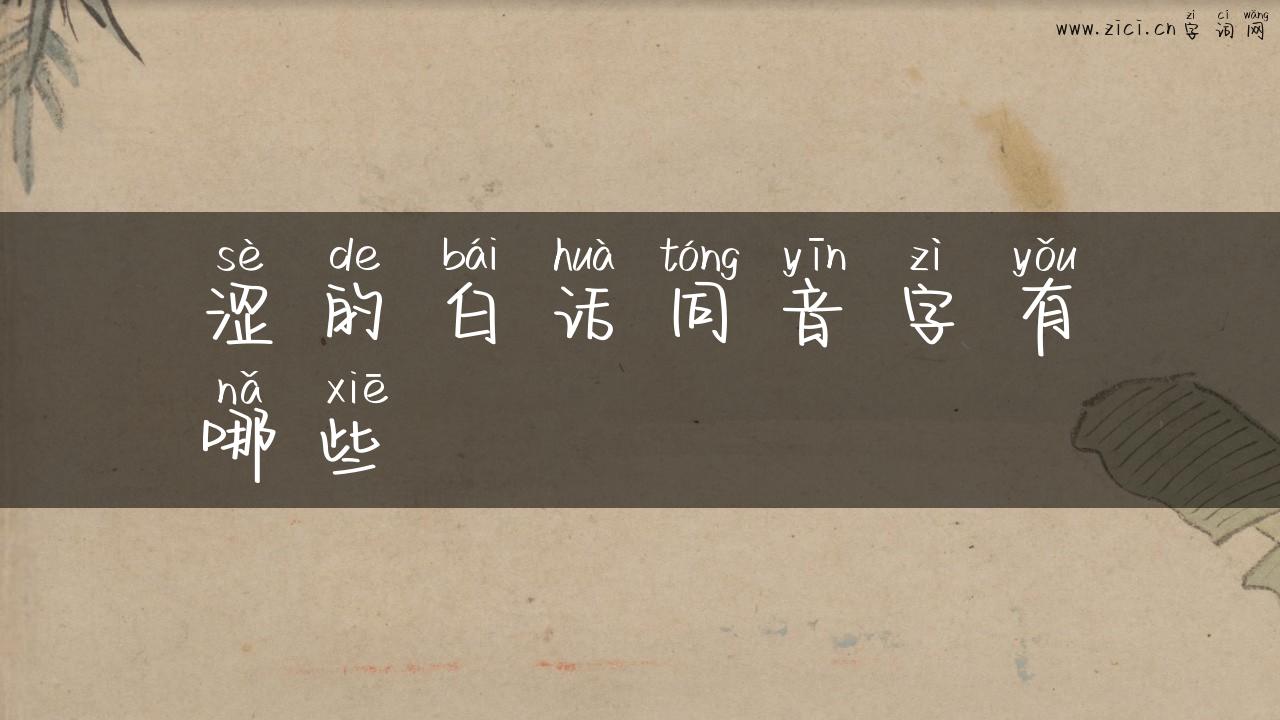 zì cí wǎng
www.zici.cn 字词网
sè de bái huà tóng yīn zì yǒu
涩的白话同音字有
nǎ xiē
哪些